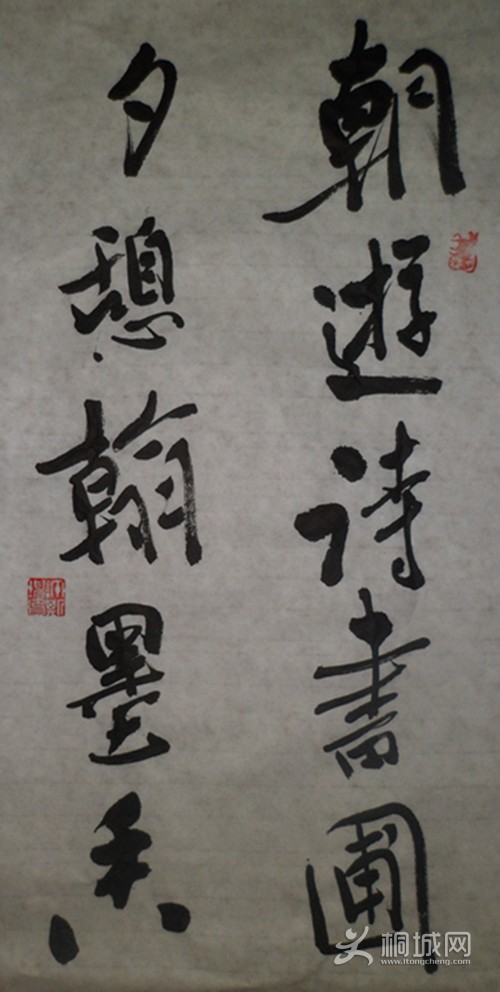 朝遊诗書圃
夕憩翰墨香
桐城网
www.itongcheng.com